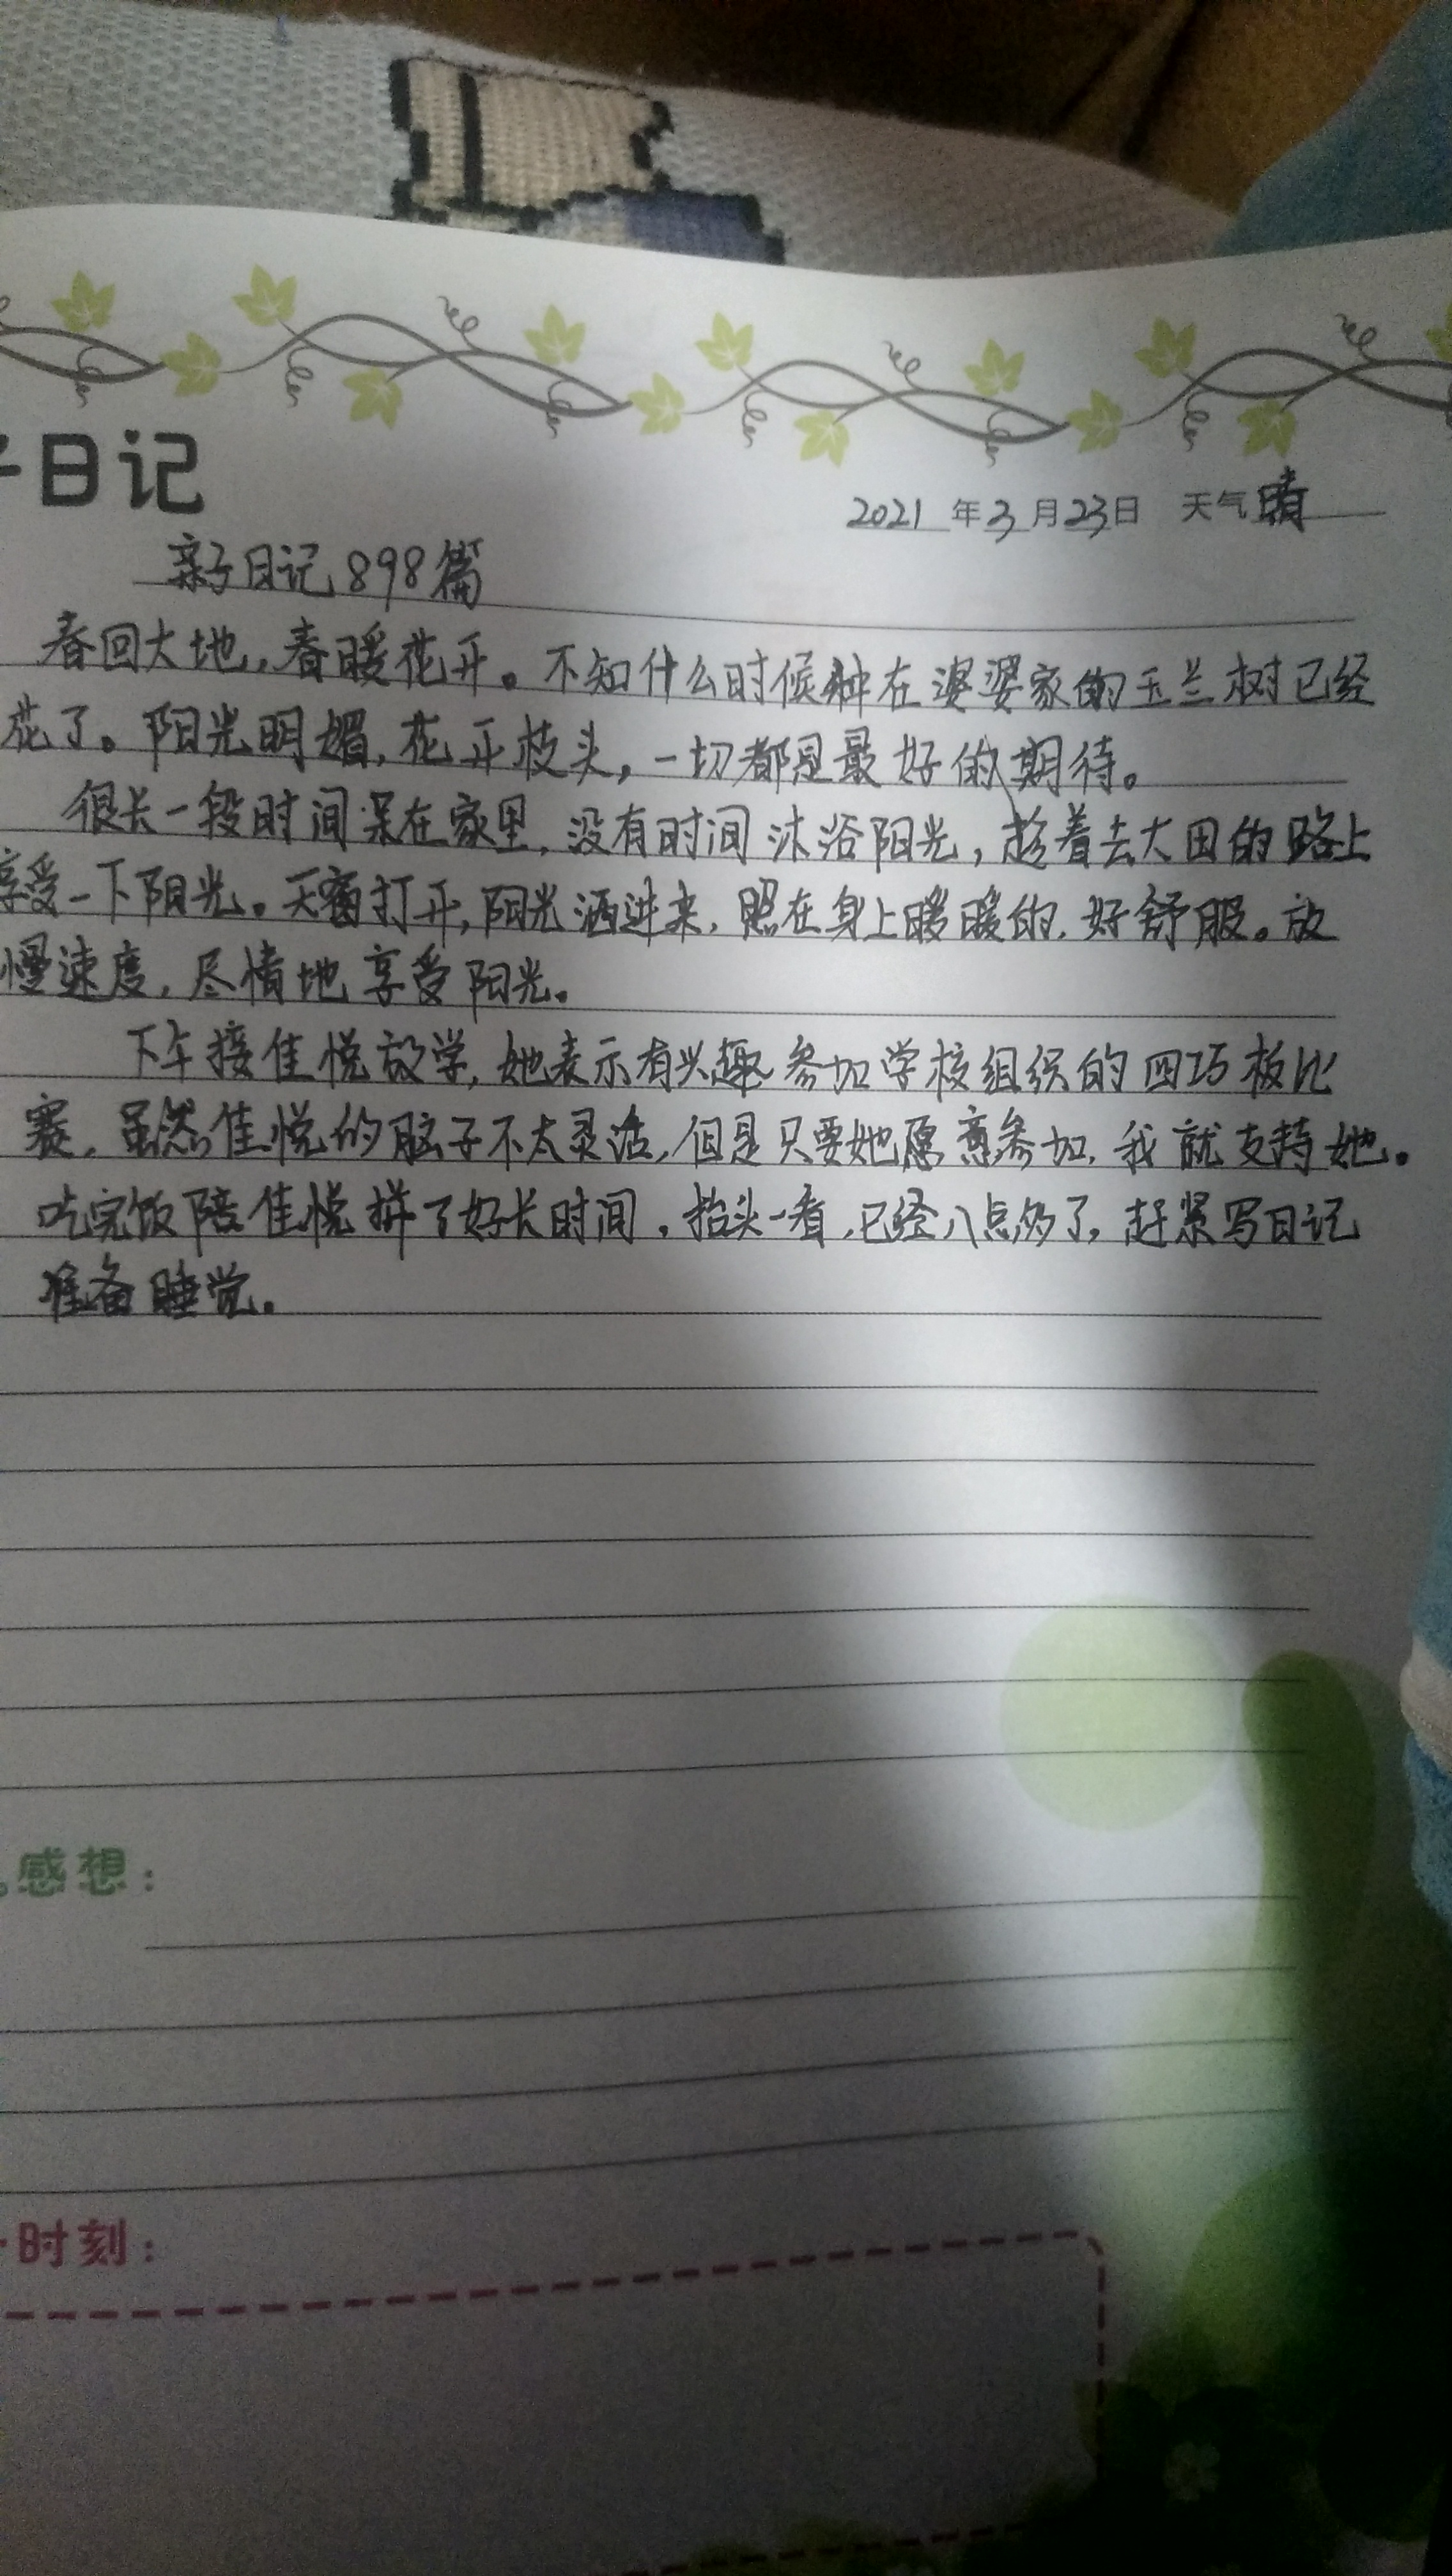 日记
2021年3月23日 天气晴
亲子日记898篇
春回大地,春暖花开。不知什么时候种在婆婆家的玉兰树已经
花了。阳光明媚,花开枝头,一切都是最好的期待。
很长一段时间呆在家里,没有时间沐浴阳光,趁着去大田的路上
享受一下阳光。天窗打开,阳光洒进来,照在身上暖暖的,好舒服。放
慢速度,尽情地享受阳光。
下午接佳悦放学,她表示有兴趣参加学校组织的四巧板比
赛,虽然佳悦的脑子不太灵活,但是只要她愿意参加,我就支持她。
吃完饭陪佳悦拼了好长时间,抬头一看,已经八点多了,赶紧写日记
准备睡觉。
感想:
时刻: